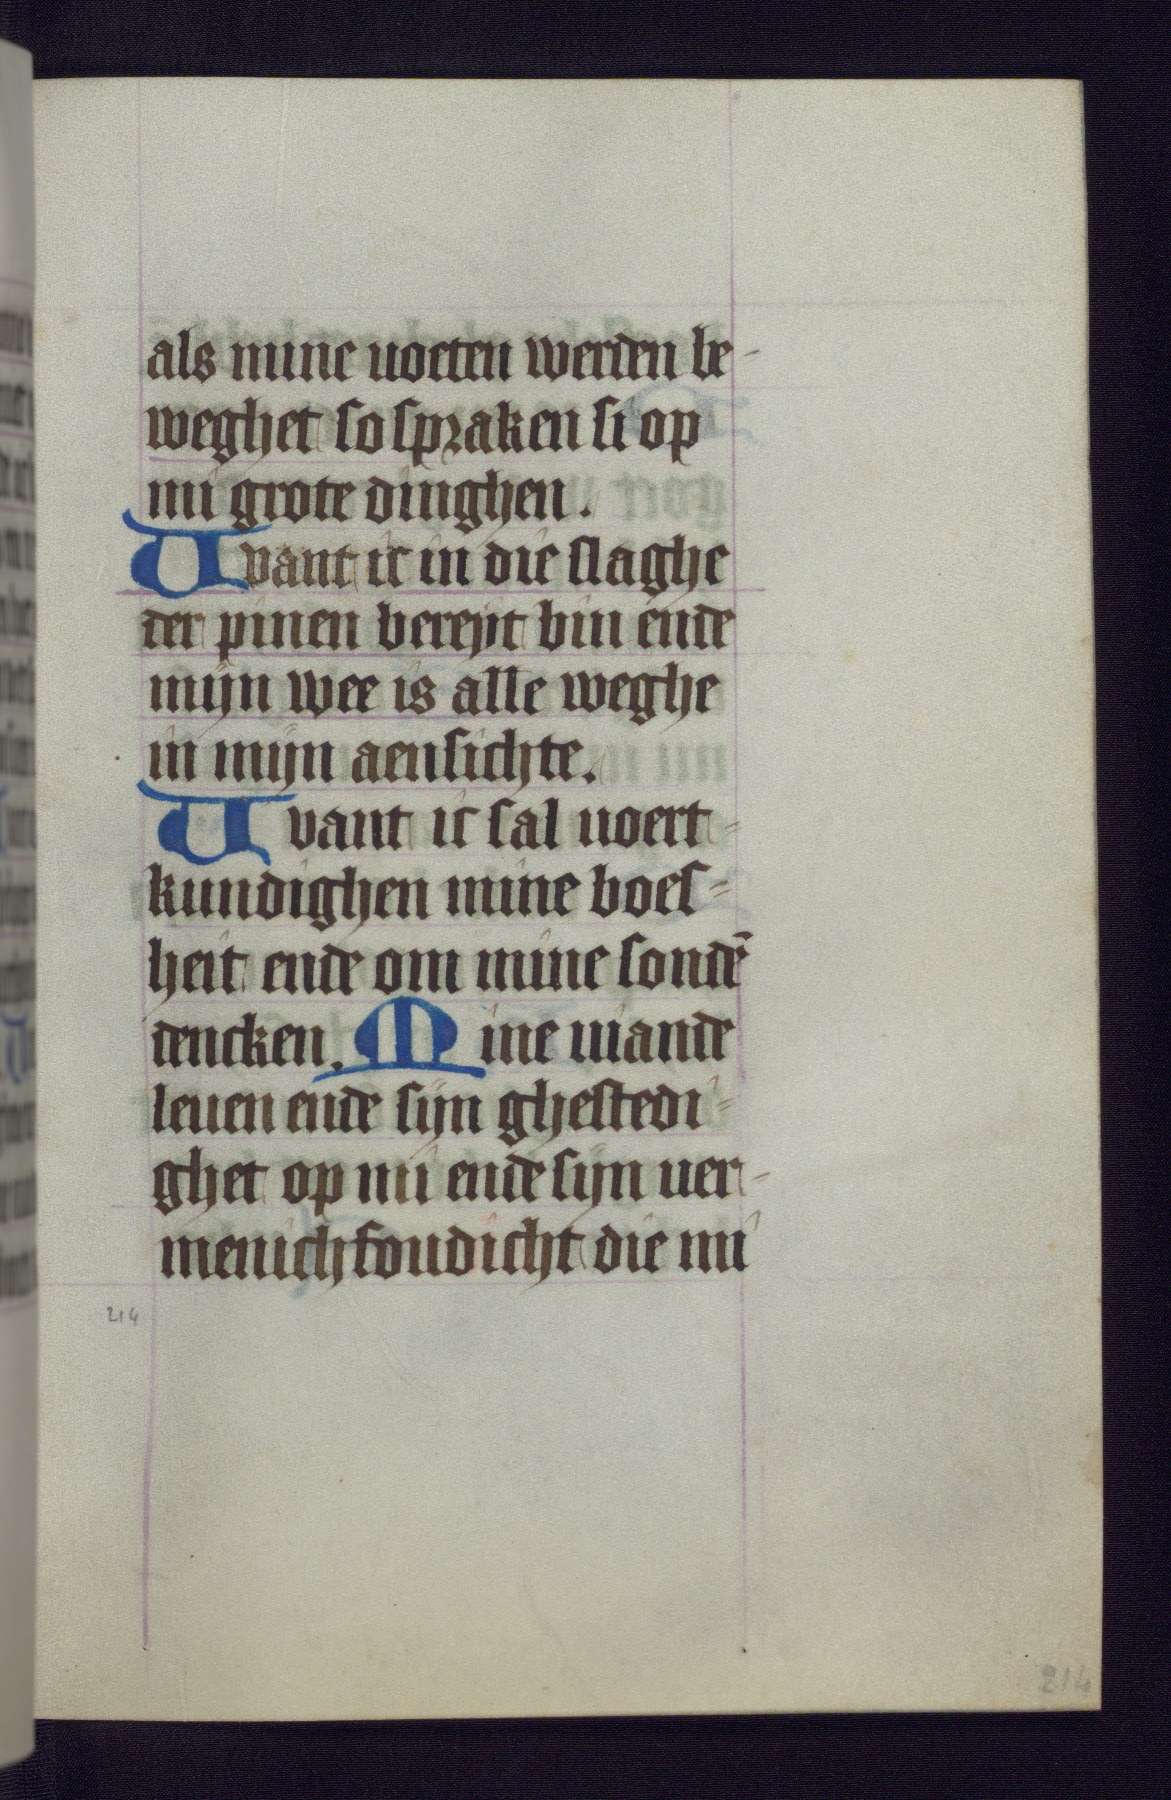 als mine uoeten werden be-
weghet so spraken si op
mi grote dinghen.
Uvant ic in die slaghe
der pinen bereyt bin ende
mijn wee is alle weghe
in mijn aensichte.
Uvant ic sal uoert-
kundighen mine boes-
heit ende om mine sondē
dencken. Mine uiande
leuen ende sijn ghestedi-
ghet op mi ende sijn uer-
menichfoudicht die mi
214
214